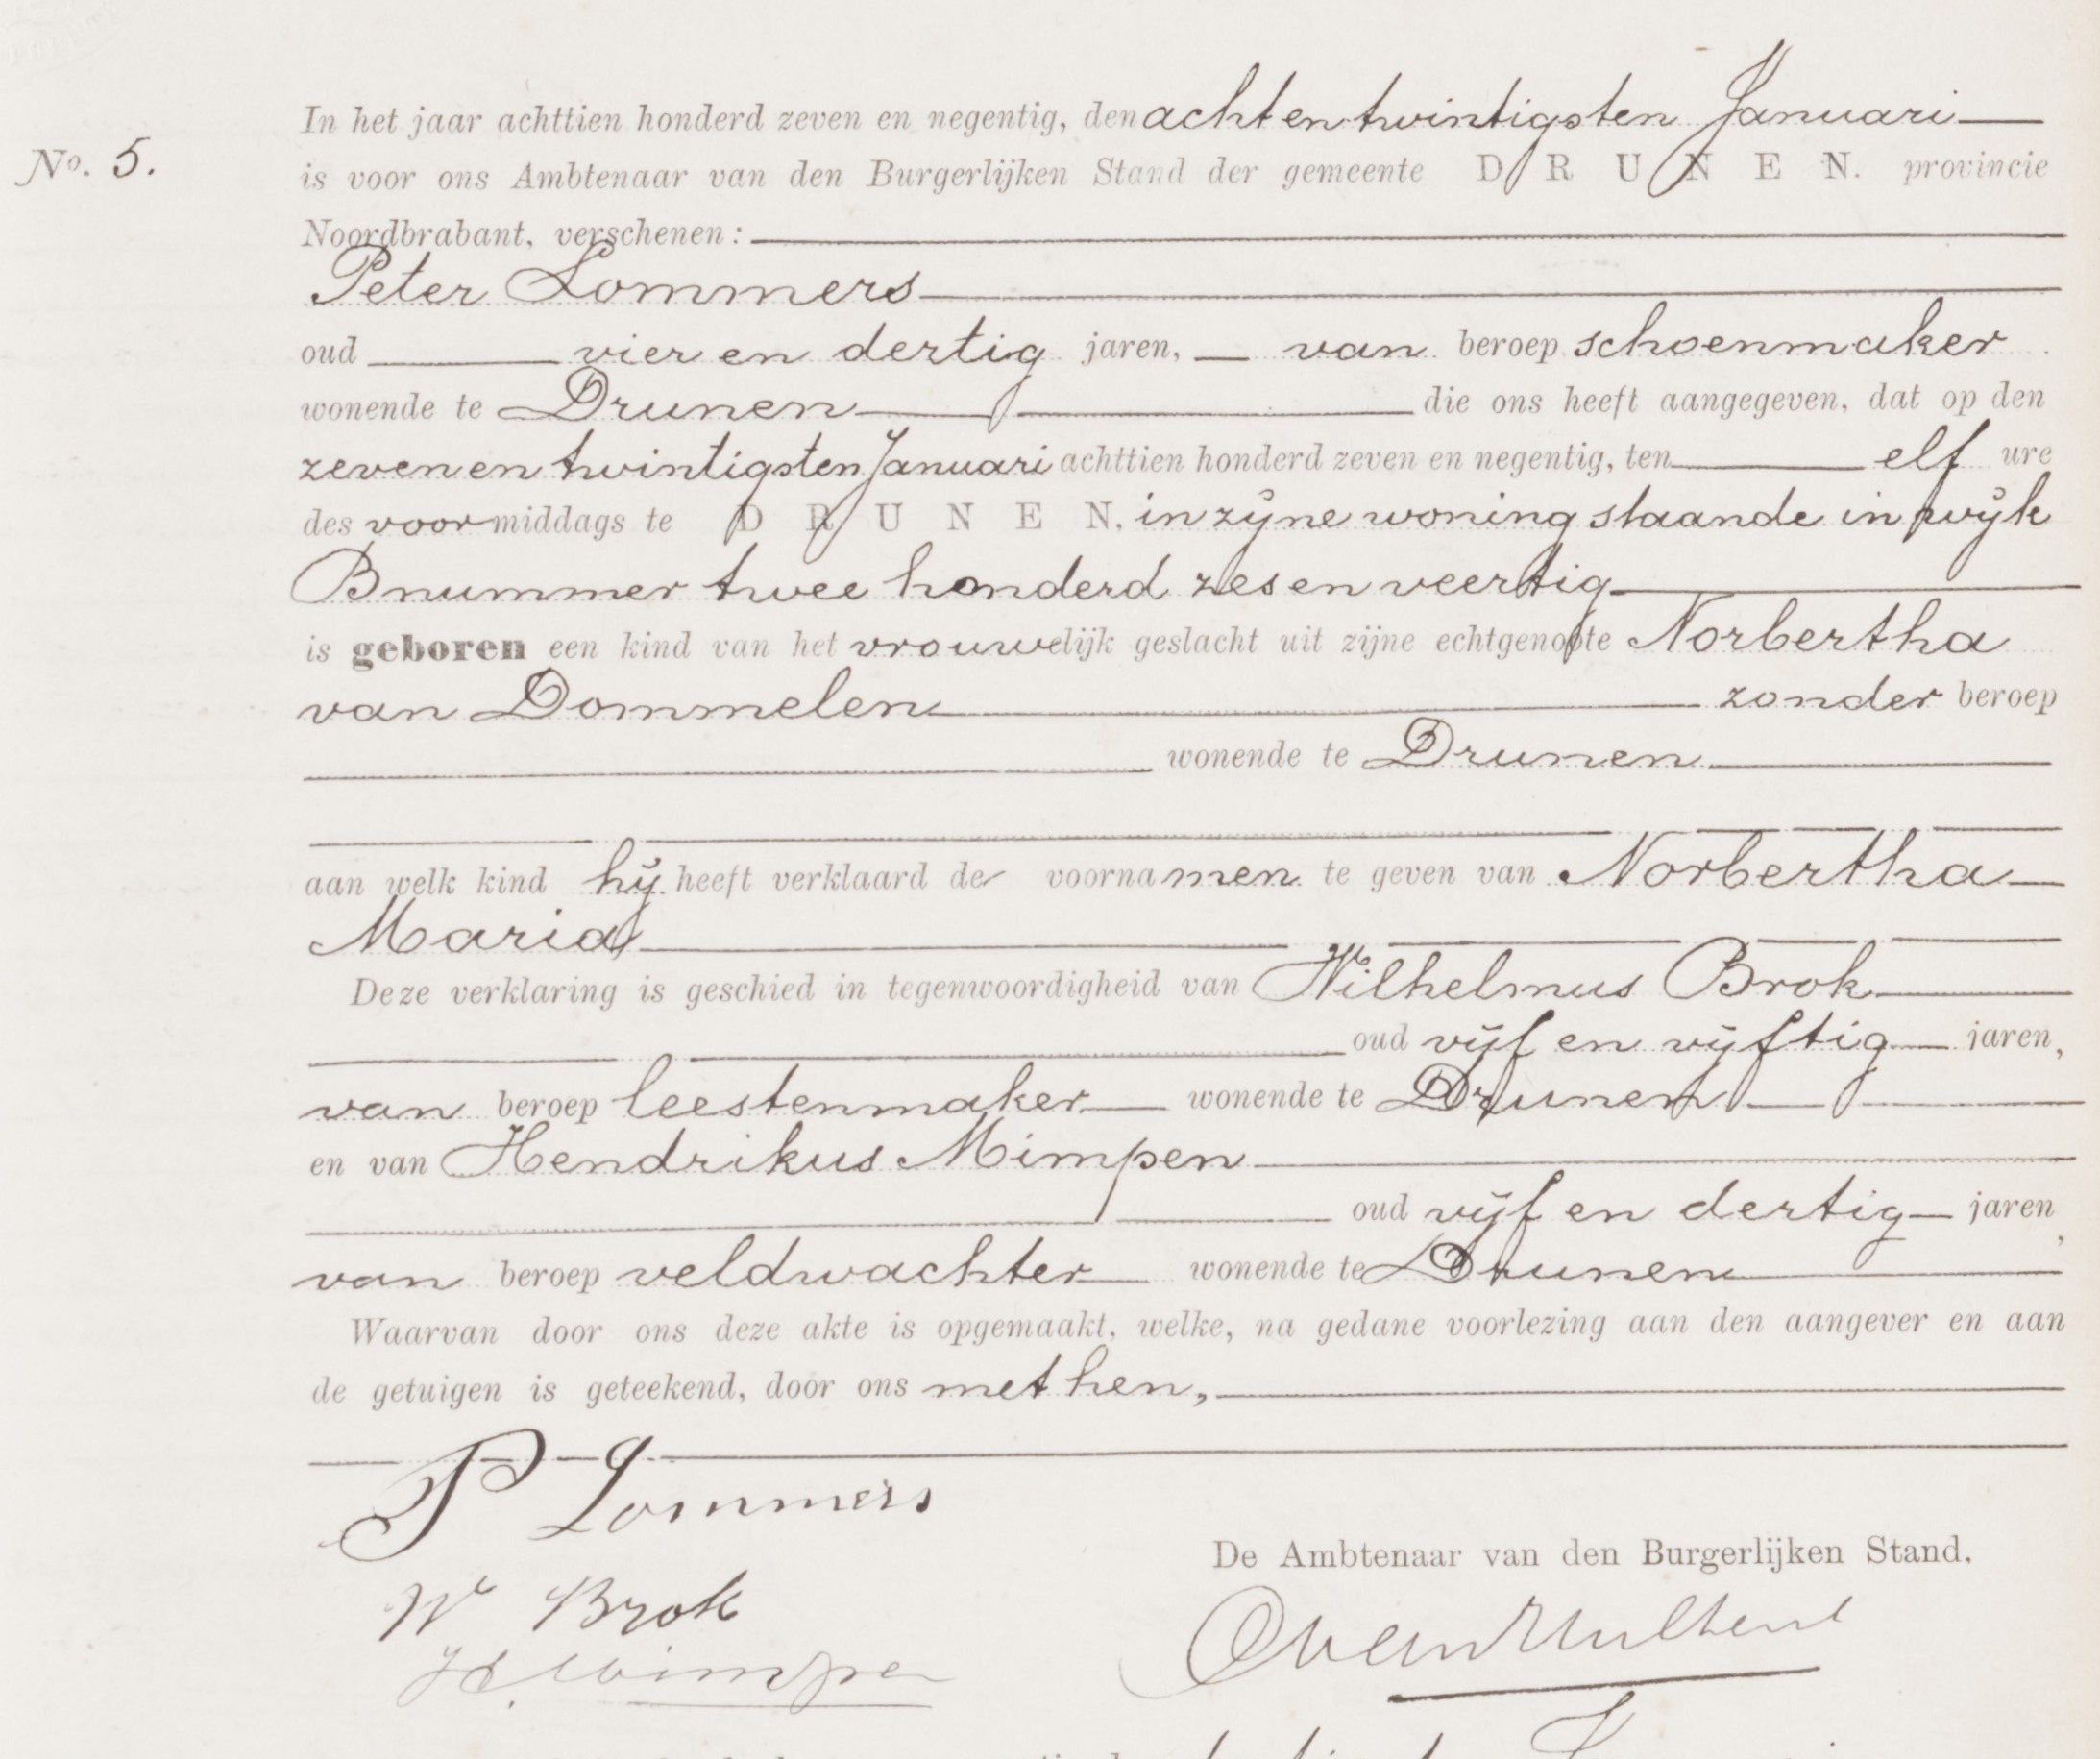 No. 5.
In het jaar achttien honderd zeven en negentig, den achtentwintigsten Januari
is voor ons Ambtenaar van den Burgerlijken Stand der gemeente DRUNEN. provincie
Noordbrabant, verschenen:
Peter Lommers
oud vier en dertig jaren, van beroep schoenmaker
wonende te Drunen die ons heeft aangegeven, dat op den
zevenentwintigsten Januari achttien honderd zeven en negentig, ten elf ure
des voormiddags te DRUNEN, in zijne woning staande in wijk
B nummer twee honderd zesenveertig
is geboren een kind van het vrouwelijk geslacht uit zijne echtgenoote Norbertha
van Dommelen zonder beroep
wonende te Drunen
aan welk kind hij heeft verklaard de voornamen te geven van Norbertha
Maria
Deze verklaring is geschied in tegenwoordigheid van Wilhelmus Brok
oud vijf en vijftig jaren,
van beroep leestenmaker wonende te Drunen
en van Hendrikus Mimpen
oud vijf en dertig jaren,
van beroep veldwachter wonende te Drunen
Waarvan door ons deze akte is opgemaakt, welke, na gedane voorlezing aan den aangever en aan
de getuigen is geteekend, door ons met hen,
P Lommers
De Ambtenaar van den Burgerlijken Stand,
W Brok
H Mimpen